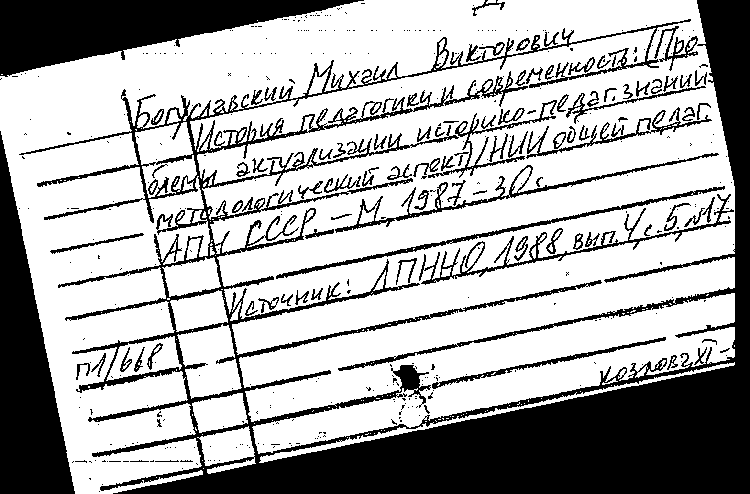 Богуславский, Михаил Викторович
История педагогики и современность: (Про-
блемы актуализации историко-педаг. знаний:
методологический аспект) / НИИ общей педаг.
АПН СССР. – М., 1987. – 30 с.
Источник: ДПННО, 1988, вып. 4, с. 5, №17.
п1/668